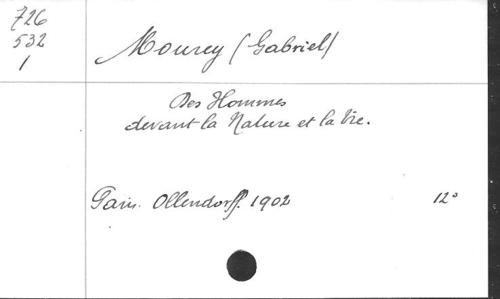 726
532
1
Mourey (Gabriel)
Des Hommes
devant la Nature et la Vie.
Paris. Ollendorff. 1902 12°